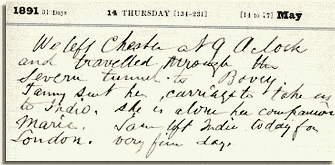 1891 31 Days 14 THURSDAY [134-231] [14 to 17] May
We left Chester at 9 O,clock
and travelled through the
Severn tunnel to Bovey
Fanny sent her carriage to take us
to Indio. She is alone her companion
Marie. Sam left Indio today for
London. very fine day.